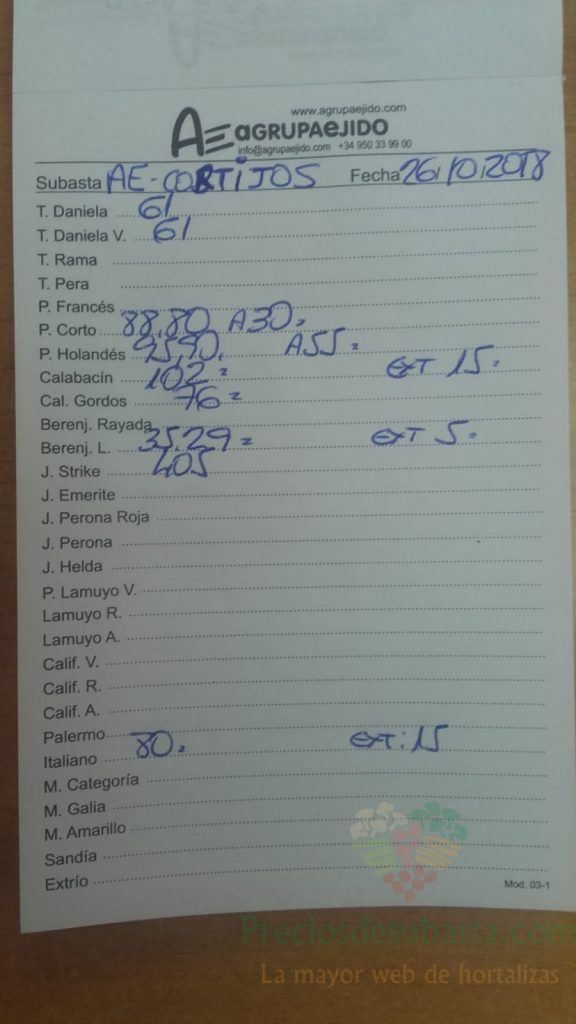 www.agrupaejido.com
AE AGRUPAEJIDO
info@agrupaejido.com +34 950 33 99 00
Subasta AE-CORTIJOS Fecha 26/10/2018
T. Daniela 61
T. Daniela V. 61
T. Rama
T. Pera
P. Francés
P. Corto 88,80 A30=
P. Holandés 95,90. A55=
Calabacín 102= EXT 15=
Cal. Gordos 76=
Berenj. Rayada
Berenj. L. 35,29= EXT 5=
J. Strike 405
J. Emerite
J. Perona Roja
J. Perona
J. Helda
P. Lamuyo V.
Lamuyo R.
Lamuyo A.
Calif. V.
Calif. R.
Calif. A.
Palermo
Italiano 80= EXT:15
M. Categoría
M. Galia
M. Amarillo
Sandía
Extrío
Mod. 03-1
Preciosdesubasta.com
La mayor web de hortalizas